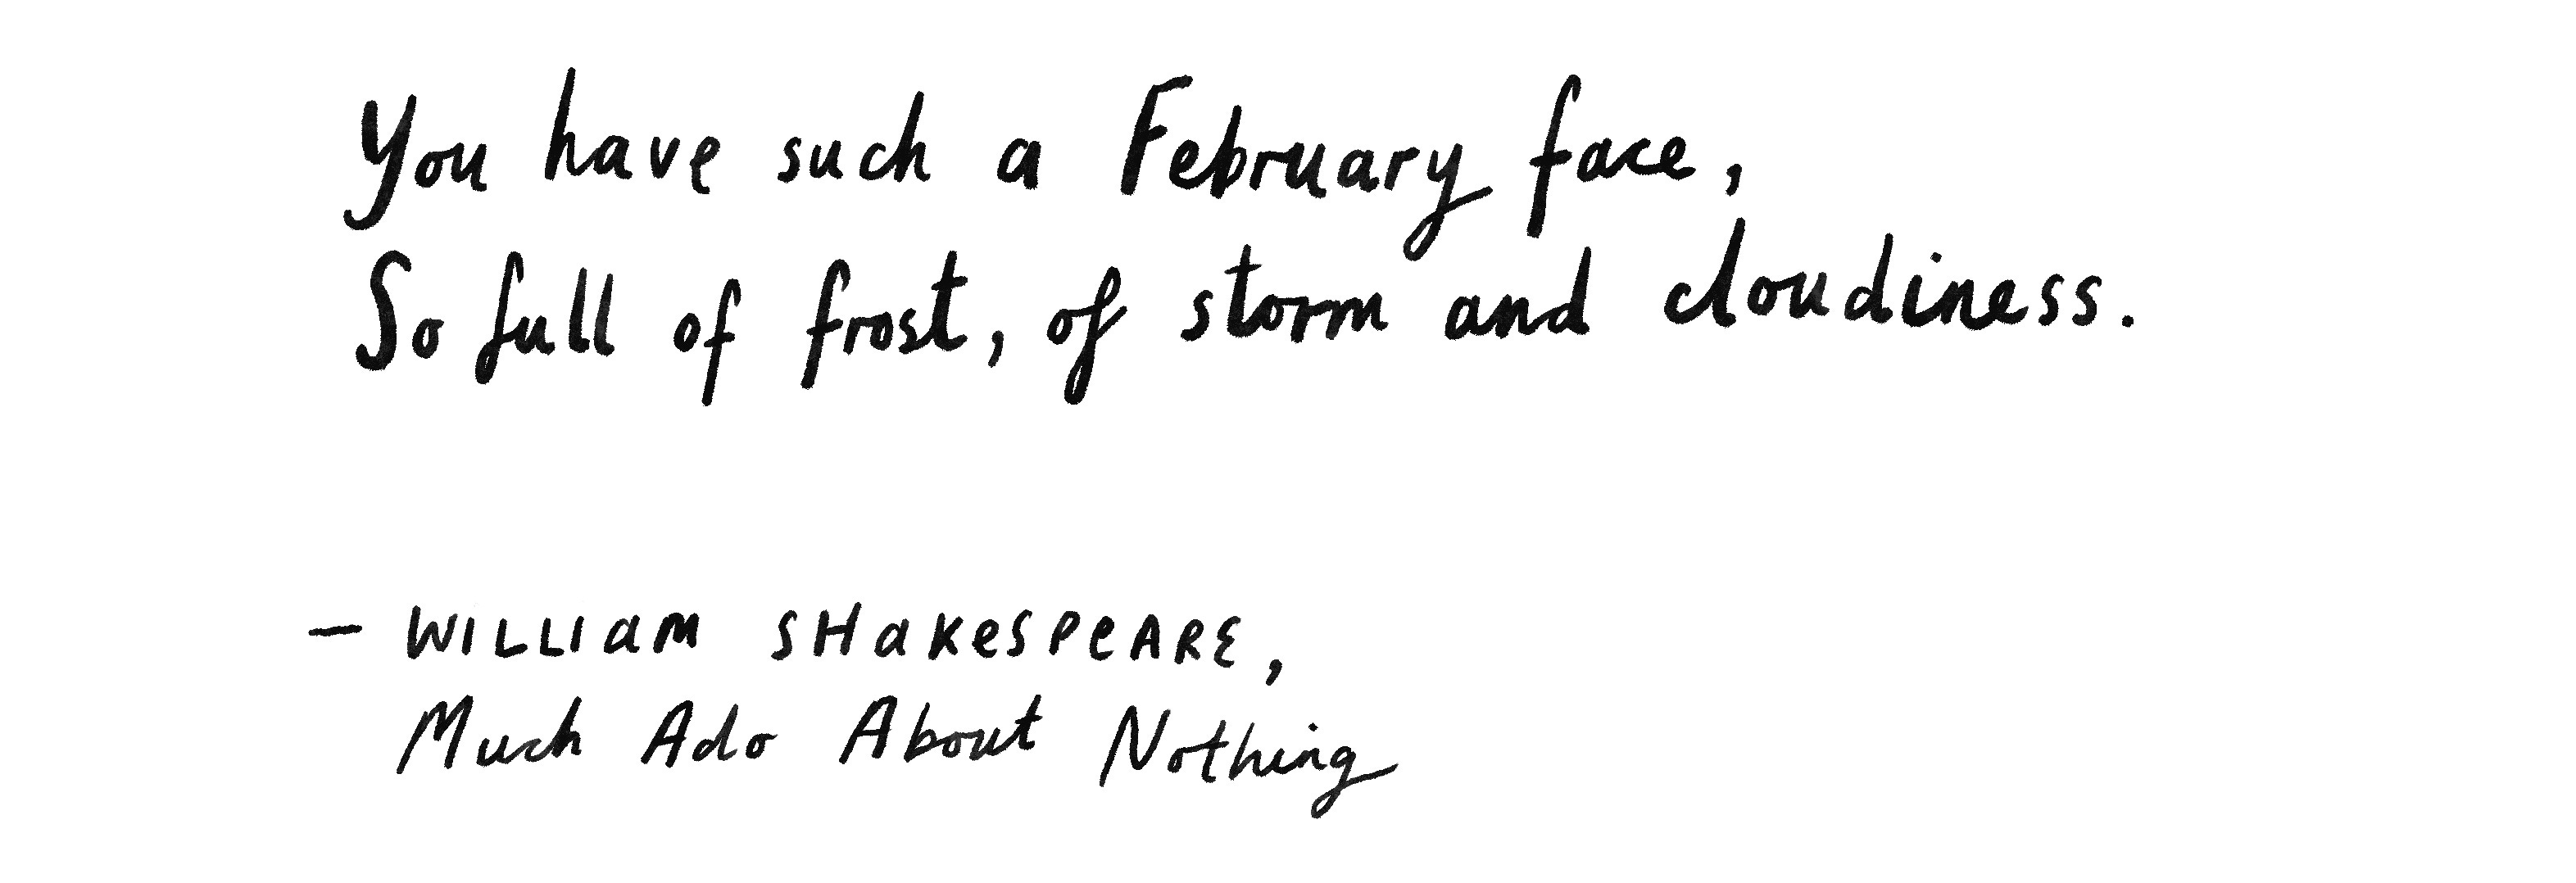 You have such a February face,
So full of frost, of storm and cloudiness.
— WILLIAM SHAKESPEARE,
Much Ado About Nothing